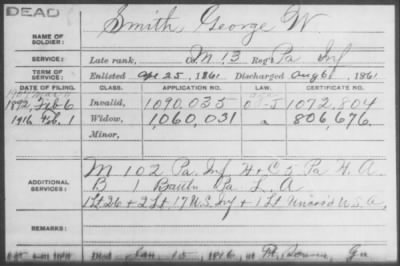 DEAD
NAME OF SOLDIER: Smith George W
SERVICE: Late rank, Co. M 13 Reg't Pa Inf
TERM OF SERVICE: Enlisted Apr 25, 1861 Discharged Aug 6 1861
DATE OF FILING. CLASS. APPLICATION NO. LAW. CERTIFICATE NO.
1892, Feb 6 Invalid, 1090,035 1072,804
1916 Feb. 1 Widow, 1060,031 " 806,676
Minor,
ADDITIONAL SERVICES: M 102 Pa. Inf H + C 5 Pa H. A.
B 1 Battn Pa L. A
1 Lt 26 + 2 Lt, 17 U.S. Inf + 1 Lt U.S.A,
REMARKS:
Jan 15 1916 Ga